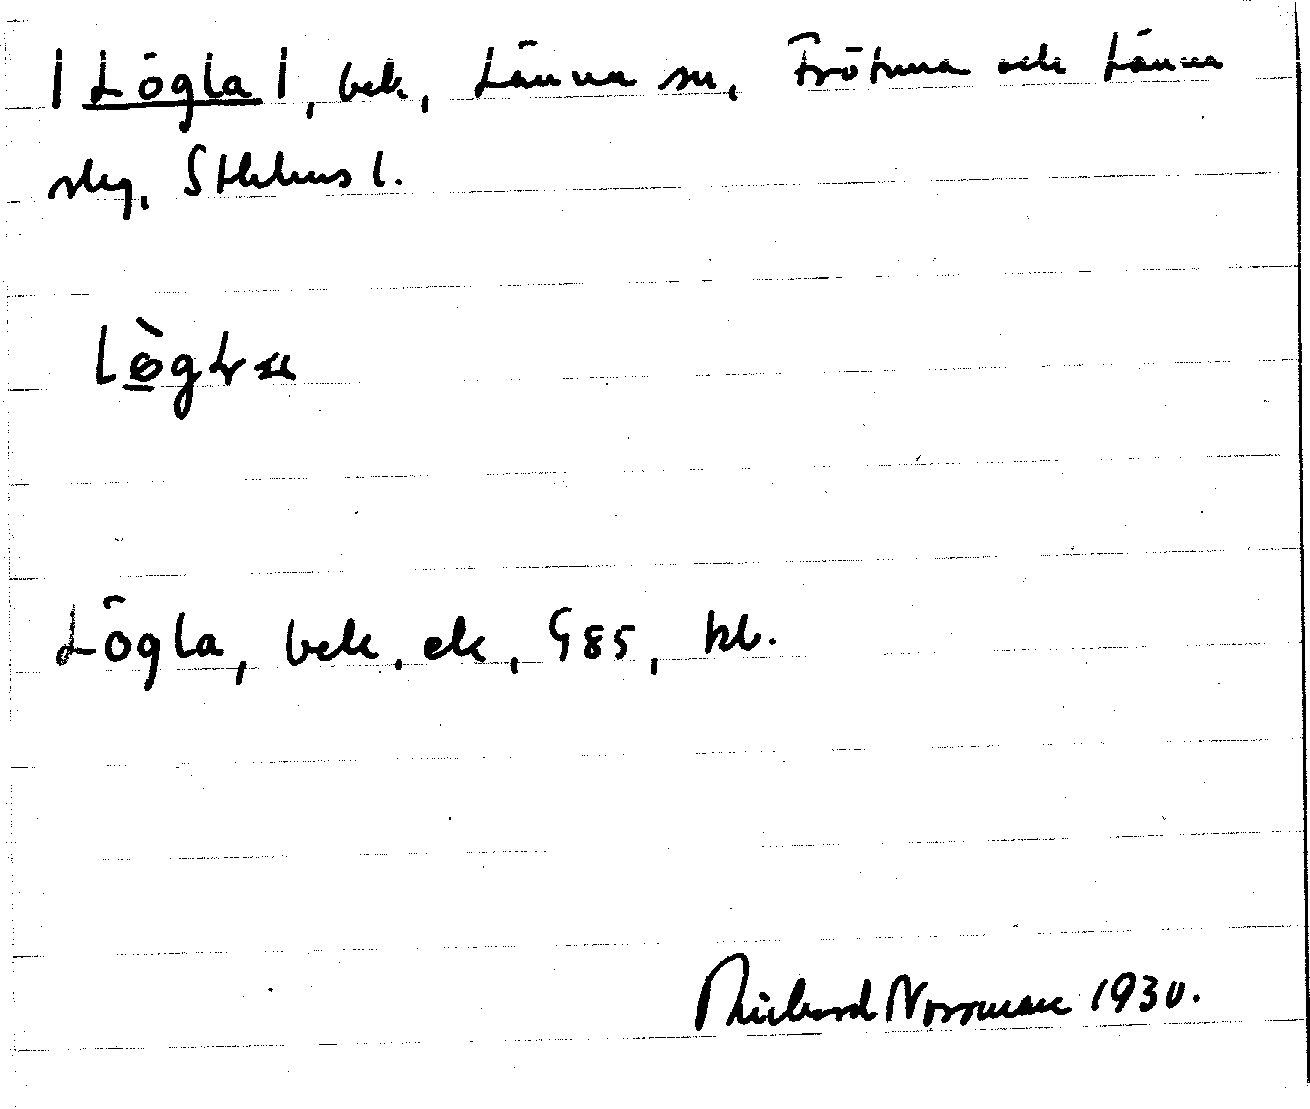 |Lögla|, bek, Länna sn, Frötuna och Länna
slg, Sthlms l.
Lögla, bek. ek, G85, kb.
Richard Norrman 1930.